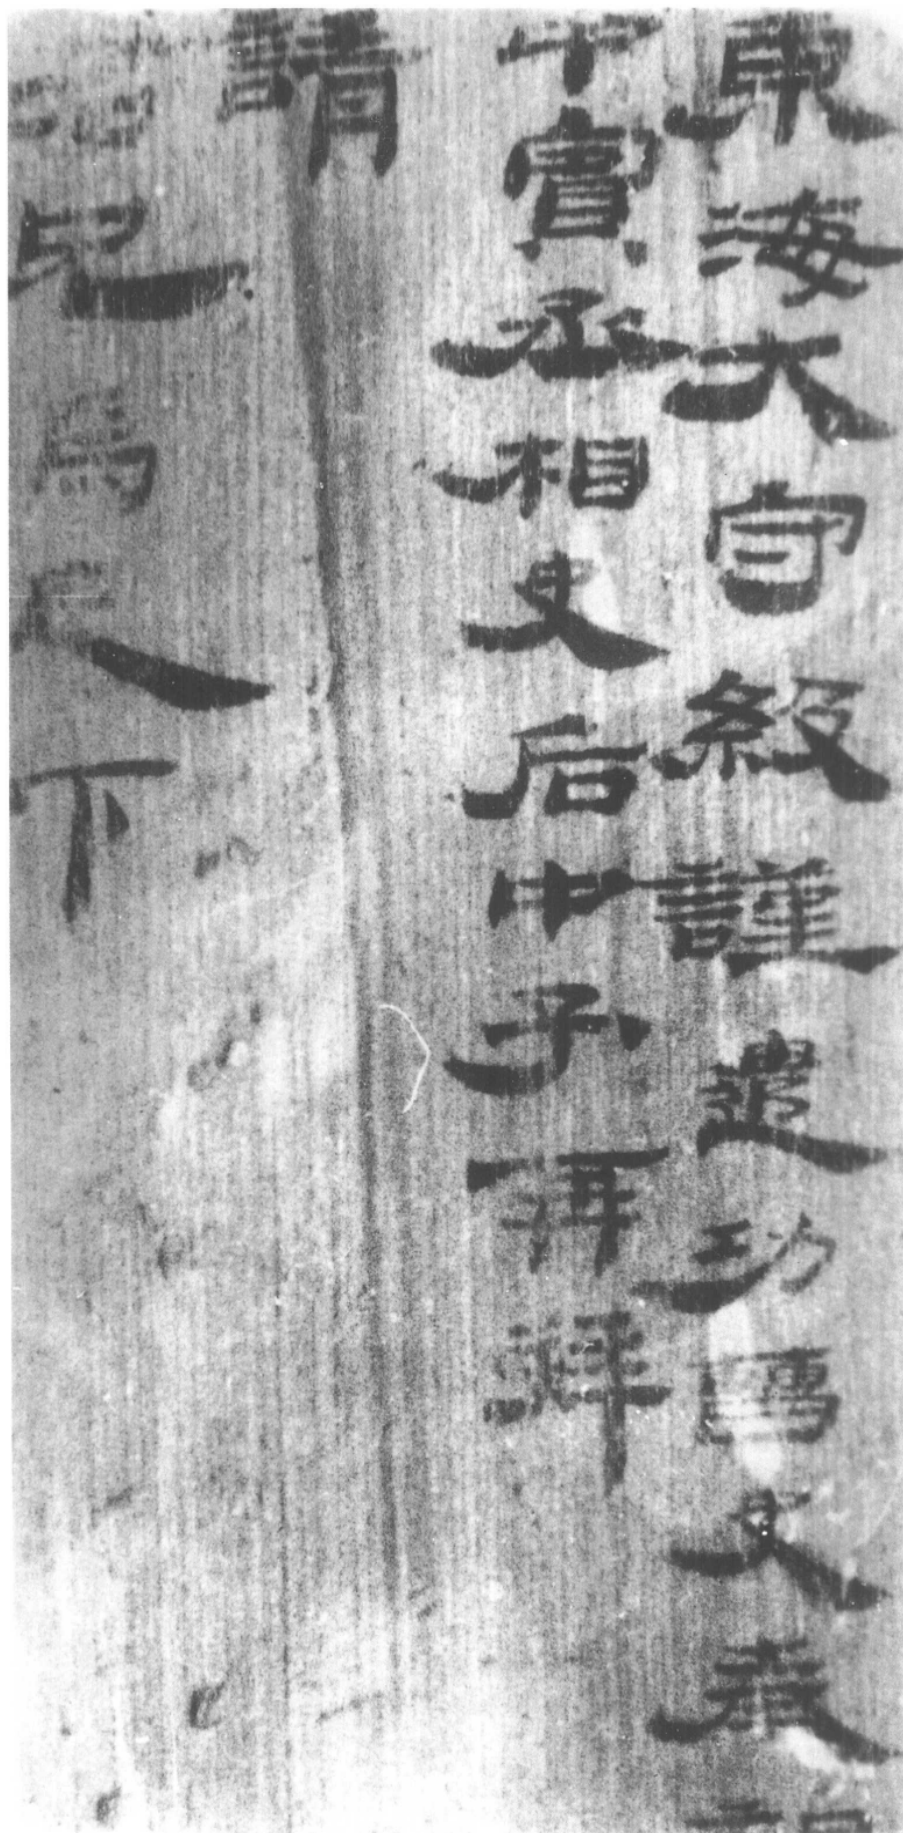 東海大守級謹遣功曹史奉
中賓丞相史后中子再拜
請
君兄馬足下